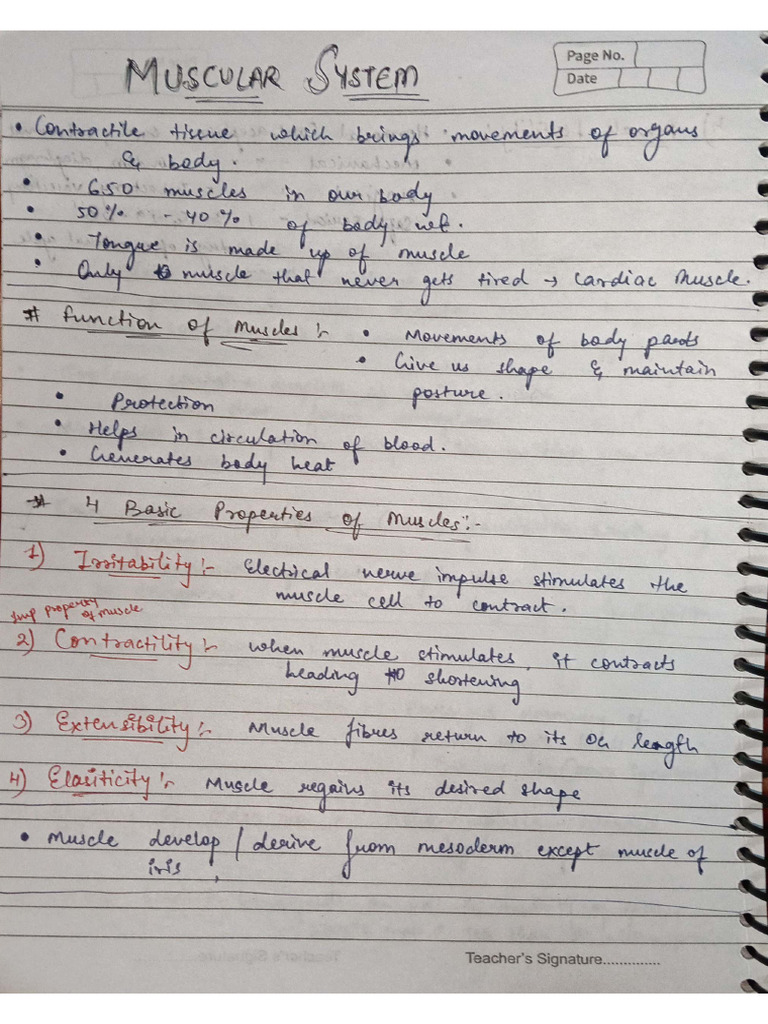 MUSCULAR SYSTEM
Page No.
Date
• Contractile tissue which brings movements of organs
& body.
• 650 muscles in our body
• 50% - 40% of body wt.
• Tongue is made up of muscle
• Only muscle that never gets tired → Cardiac Muscle.
# Function of Muscles :- • Movements of body parts
• Give us shape & maintain
posture.
• Protection
• Helps in circulation of blood.
• Generates body heat
* 4 Basic Properties of Muscles:-
1) Irritability :- Electrical nerve impulse stimulates the
muscle cell to contract.
Imp property of muscle
2) Contractility :- when muscle stimulates, it contracts
leading to shortening
3) Extensibility :- Muscle fibres return to its length
4) Elasiticity :- Muscle regains its desired shape
• Muscle develop / derive from mesoderm except muscle of
iris,
Teacher's Signature..............